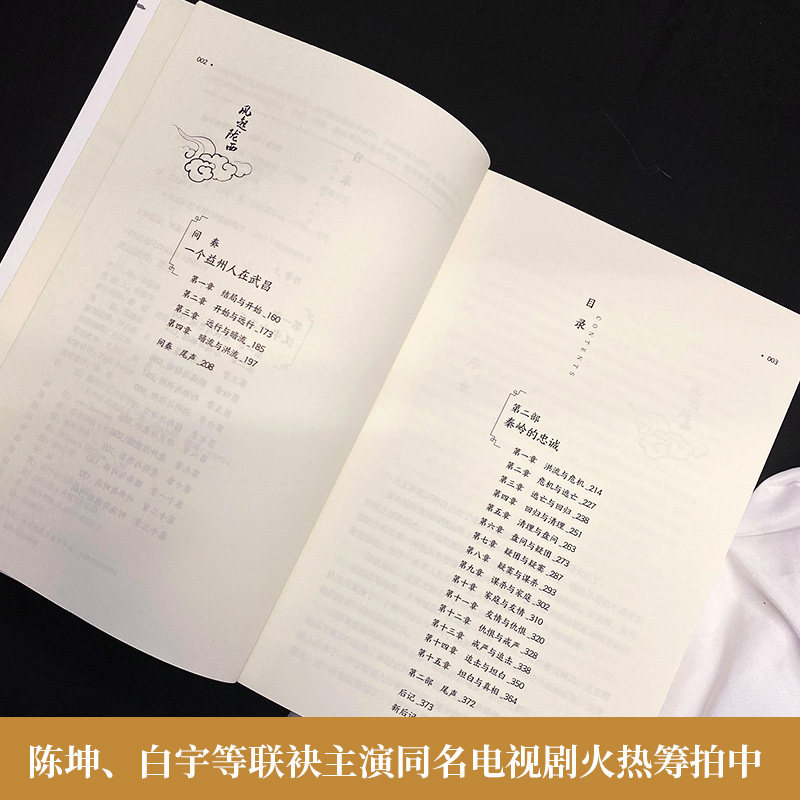 002
风起陇西
间奏
一个益州人在武昌
第一章 结局与开始_160
第二章 开始与远行_173
第三章 远行与暗流_185
第四章 暗流与洪流_197
间奏 尾声_208
目录
CONTENTS
003
第二部
秦岭的忠诚
第一章 洪流与危机_214
第二章 危机与逃亡_227
第三章 逃亡与回归_238
第四章 回归与清理_251
第五章 清理与盘问_263
第六章 盘问与疑团_273
第七章 疑团与疑窦_287
第八章 疑窦与谋杀_293
第九章 谋杀与家庭_302
第十章 家庭与友情_310
第十一章 友情与仇恨_320
第十二章 仇恨与戒严_328
第十三章 戒严与追击_338
第十四章 追击与坦白_350
第十五章 坦白与真相_364
第二部 尾声_372
后记_373
新后记
陈坤、白宇等联袂主演同名电视剧火热筹拍中